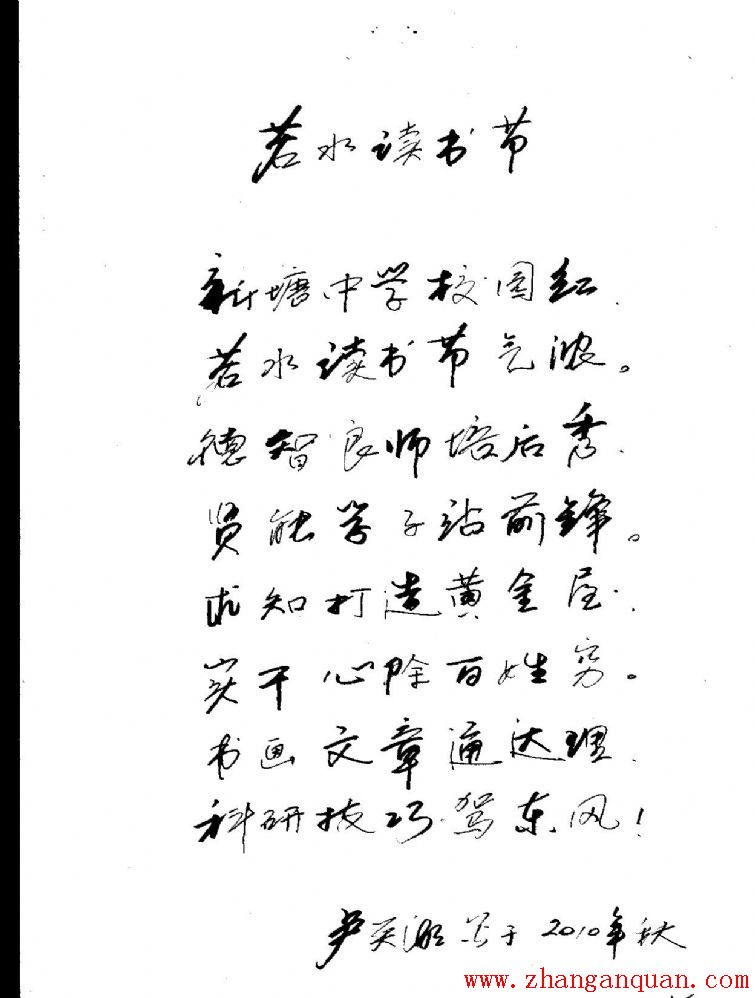 若水读书节
新塘中学校园红.
若水读书节气浓。
德智良师培后秀.
贤能学子站前锋。
求知打造黄金屋.
实干心除百姓穷。
书画文章通达理.
科研技巧驾东风!
于2010年秋
www.zhanganquan.com